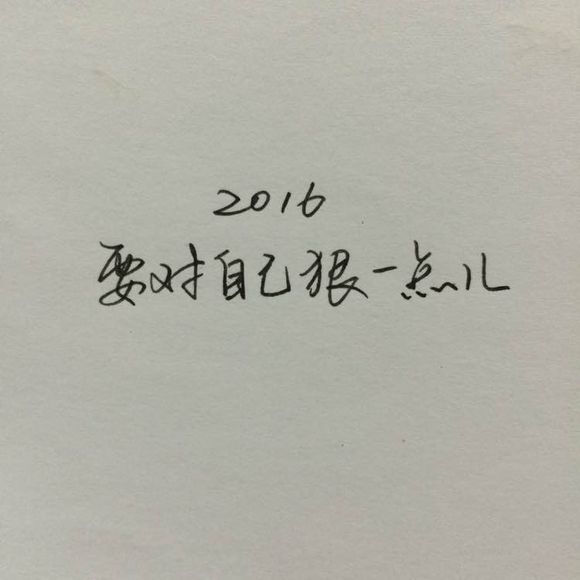 2016
要对自己狠一点儿